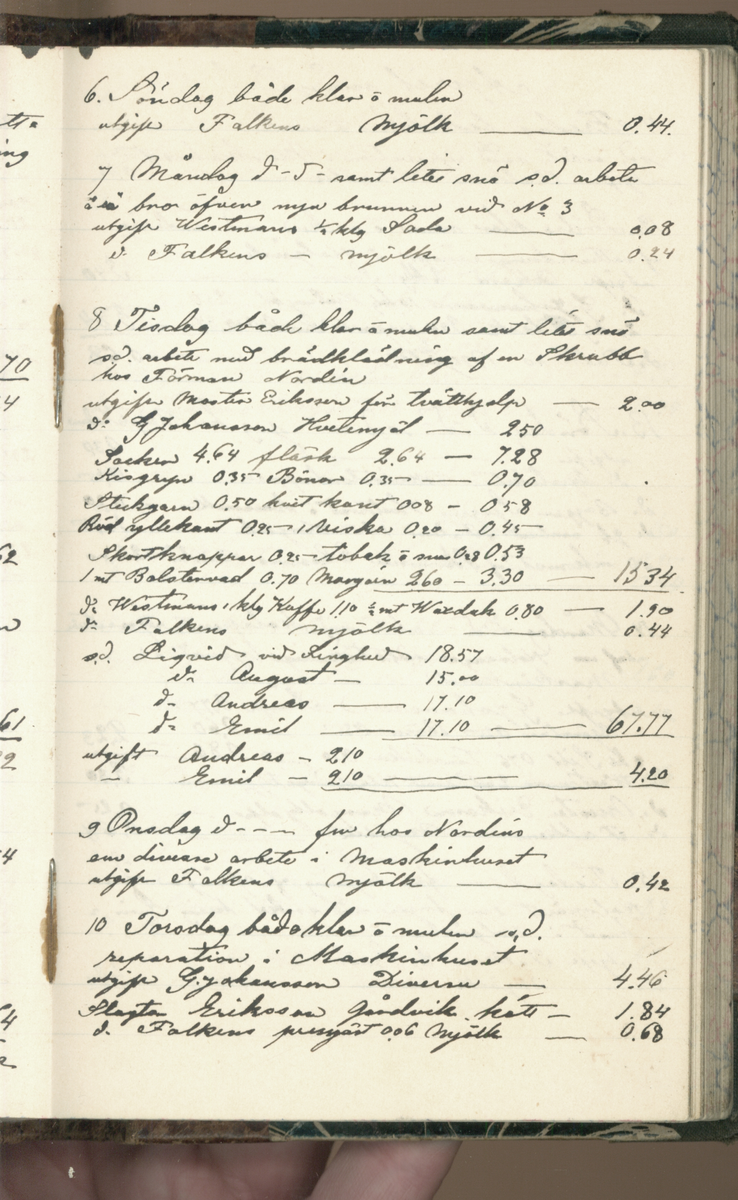 6. Söndag både klar o mulen
utgift Falkens Mjölk 0.44.
7 Måndag d - d - samt lite snö s.d. arbete
bro öfver nya brunnen vid No 3
utgift Westmans ½ klg Soda 0.08
d: Falkens - mjölk 0.24
8 Tisdag både klar o mulen samt lite snö
s.d. arbete med brädklädning af en Skrubb
hos Förman Nordin
utgift Moster Eriksson för tvätthjelp - 2.00
d: G Johansson Hvetemjöl - 2 50
Socker 4.64 fläsk 2.64 - 7.28
Risgryn 0.35 Bönor 0.35 - 0.70
Stickgarn 0.50 hvit kant 0 08 - 0 58
Röd yllekant 0.25 1 Viska 0.20 - 0.45
Skjortknappar 0.25 tobak o snus 0.28 0.53
1 mt Bolstervad 0.70 Margarin 2 60 - 3.30 - 15 34
d: Westmans 1 klg Kaffe 1.10 ½ mt Waxduk 0.80 - 1.90
d: Falkens mjölk 0.44
s.d. Liqvid vid 18.57
d: August - 15.00
d: Andreas - 17.10
d: Emil - 17.10 - 67.77
utgift Andreas - 2 10
- Emil - 2 10 - 4.20
9 Onsdag d - - - fm hos Nordins
em diverse arbete i Maskinhuset
utgift Falkens mjölk 0.42
10 Torsdag både klar o mulen s.d.
reparation i Maskinhuset
utgift G. Johansson Diverse - 4.46
Slagtar Eriksson Gårdvik kött - 1.84
d. Falkens pressjäst 0 06 Mjölk - 0.68